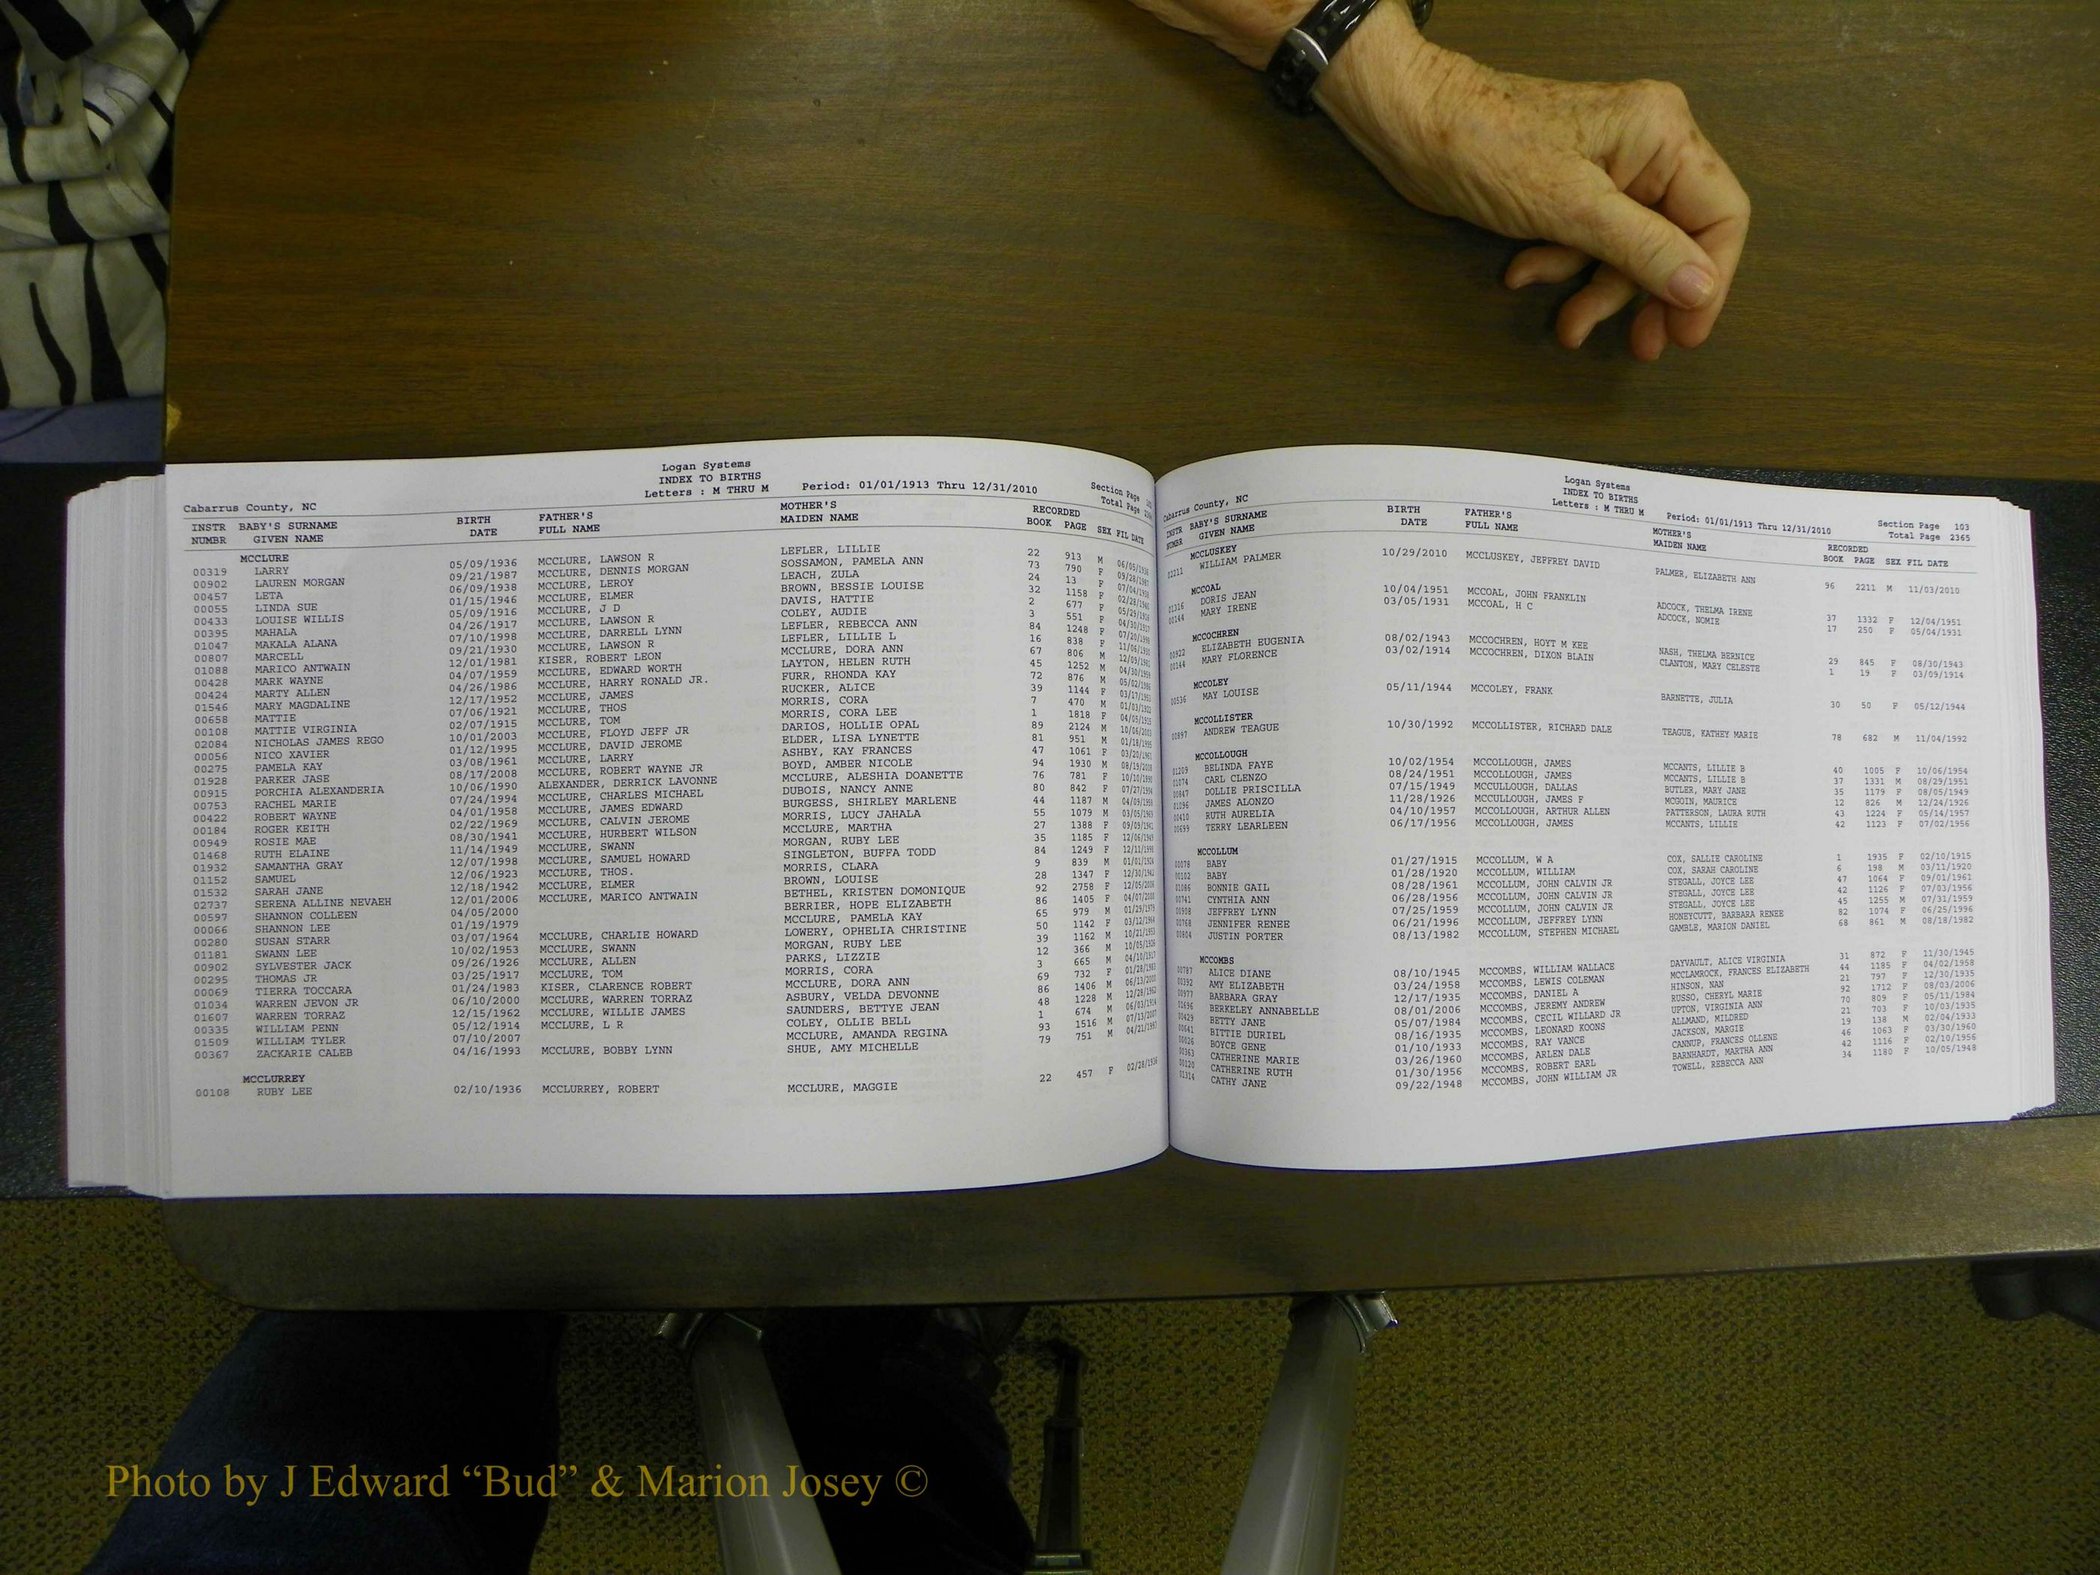 Logan Systems
INDEX TO BIRTHS
Cabarrus County, NC Letters : M THRU M Period: 01/01/1913 Thru 12/31/2010 Section Page
Total Page
INSTR BABY'S SURNAME BIRTH FATHER'S MOTHER'S RECORDED
NUMBR GIVEN NAME DATE FULL NAME MAIDEN NAME BOOK PAGE SEX FIL DATE
MCCLURE
00319 LARRY 05/09/1936 MCCLURE, LAWSON R LEFLER, LILLIE 22 913 M 06/05/1936
00902 LAUREN MORGAN 09/21/1987 MCCLURE, DENNIS MORGAN SOSSAMON, PAMELA ANN 73 790 F 09/28/1987
00457 LETA 06/09/1938 MCCLURE, LEROY LEACH, ZULA 24 13 F 07/04/1938
00055 LINDA SUE 01/15/1946 MCCLURE, ELMER BROWN, BESSIE LOUISE 32 1158 F 02/28/1946
00433 LOUISE WILLIS 05/09/1916 MCCLURE, J D DAVIS, HATTIE 2 677 F 05/29/1916
00395 MAHALA 04/26/1917 MCCLURE, LAWSON R COLEY, AUDIE 3 551 F 04/30/1917
01047 MAKALA ALANA 07/10/1998 MCCLURE, DARRELL LYNN LEFLER, REBECCA ANN 84 1248 F 07/20/1998
00807 MARCELL 09/21/1930 MCCLURE, LAWSON R LEFLER, LILLIE L 16 838 F 11/06/1930
01088 MARICO ANTWAIN 12/01/1981 KISER, ROBERT LEON MCCLURE, DORA ANN 67 806 M 12/05/1981
00428 MARK WAYNE 04/07/1959 MCCLURE, EDWARD WORTH LAYTON, HELEN RUTH 45 1252 M 04/30/1959
00424 MARTY ALLEN 04/26/1986 MCCLURE, HARRY RONALD JR. FURR, RHONDA KAY 72 876 M 05/02/1986
01546 MARY MAGDALINE 12/17/1952 MCCLURE, JAMES RUCKER, ALICE 39 1144 F 03/17/1953
00658 MATTIE 07/06/1921 MCCLURE, THOS MORRIS, CORA 7 470 M 01/03/1922
00108 MATTIE VIRGINIA 02/07/1915 MCCLURE, TOM MORRIS, CORA LEE 1 1818 F 04/05/1915
02084 NICHOLAS JAMES REGO 10/01/2003 MCCLURE, FLOYD JEFF JR DARIOS, HOLLIE OPAL 89 2124 M 10/06/2003
00056 NICO XAVIER 01/12/1995 MCCLURE, DAVID JEROME ELDER, LISA LYNETTE 81 951 M 01/18/1995
00275 PAMELA KAY 03/08/1961 MCCLURE, LARRY ASHBY, KAY FRANCES 47 1061 F 03/20/1961
01928 PARKER JASE 08/17/2008 MCCLURE, ROBERT WAYNE JR BOYD, AMBER NICOLE 94 1930 M 08/19/2008
00915 PORCHIA ALEXANDERIA 10/06/1990 ALEXANDER, DERRICK LAVONNE MCCLURE, ALESHIA DOANETTE 76 781 F 10/10/1990
00753 RACHEL MARIE 07/24/1994 MCCLURE, CHARLES MICHAEL DUBOIS, NANCY ANNE 80 842 F 07/27/1994
00422 ROBERT WAYNE 04/01/1958 MCCLURE, JAMES EDWARD BURGESS, SHIRLEY MARLENE 44 1187 M 04/09/1958
00184 ROGER KEITH 02/22/1969 MCCLURE, CALVIN JEROME MORRIS, LUCY JAHALA 55 1079 M 03/05/1969
00949 ROSIE MAE 08/30/1941 MCCLURE, HURBERT WILSON MCCLURE, MARTHA 27 1388 F 09/09/1941
01468 RUTH ELAINE 11/14/1949 MCCLURE, SWANN MORGAN, RUBY LEE 35 1185 F 12/06/1949
01932 SAMANTHA GRAY 12/07/1998 MCCLURE, SAMUEL HOWARD SINGLETON, BUFFA TODD 84 1249 F 12/11/1998
01152 SAMUEL 12/06/1923 MCCLURE, THOS. MORRIS, CLARA 9 839 M 01/01/1924
01532 SARAH JANE 12/18/1942 MCCLURE, ELMER BROWN, LOUISE 28 1347 F 12/30/1942
02737 SERENA ALLINE NEVAEH 12/01/2006 MCCLURE, MARICO ANTWAIN BETHEL, KRISTEN DOMONIQUE 92 2758 F 12/05/2006
00597 SHANNON COLLEEN 04/05/2000 BERRIER, HOPE ELIZABETH 86 1405 F 04/07/2000
00066 SHANNON LEE 01/19/1979 MCCLURE, PAMELA KAY 65 979 M 01/29/1979
00280 SUSAN STARR 03/07/1964 MCCLURE, CHARLIE HOWARD LOWERY, OPHELIA CHRISTINE 50 1142 F 03/12/1964
01181 SWANN LEE 10/02/1953 MCCLURE, SWANN MORGAN, RUBY LEE 39 1162 M 10/21/1953
00902 SYLVESTER JACK 09/26/1926 MCCLURE, ALLEN PARKS, LIZZIE 12 366 M 10/05/1926
00295 THOMAS JR 03/25/1917 MCCLURE, TOM MORRIS, CORA 3 665 M 04/10/1917
00069 TIERRA TOCCARA 01/24/1983 KISER, CLARENCE ROBERT MCCLURE, DORA ANN 69 732 F 01/28/1983
01034 WARREN JEVON JR 06/10/2000 MCCLURE, WARREN TORRAZ ASBURY, VELDA DEVONNE 86 1406 M 06/13/2000
01607 WARREN TORRAZ 12/15/1962 MCCLURE, WILLIE JAMES SAUNDERS, BETTYE JEAN 48 1228 M 12/28/1962
00335 WILLIAM PENN 05/12/1914 MCCLURE, L R COLEY, OLLIE BELL 1 674 M 06/03/1914
01509 WILLIAM TYLER 07/10/2007 MCCLURE, AMANDA REGINA 93 1516 M 07/13/2007
00367 ZACKARIE CALEB 04/16/1993 MCCLURE, BOBBY LYNN SHUE, AMY MICHELLE 79 751 M 04/21/1993
MCCLURREY
00108 RUBY LEE 02/10/1936 MCCLURREY, ROBERT MCCLURE, MAGGIE 22 457 F 02/28/1936
Logan Systems
INDEX TO BIRTHS
Cabarrus County, NC Letters : M THRU M Period: 01/01/1913 Thru 12/31/2010 Section Page 103
Total Page 2365
INSTR BABY'S SURNAME BIRTH FATHER'S MOTHER'S RECORDED
NUMBR GIVEN NAME DATE FULL NAME MAIDEN NAME BOOK PAGE SEX FIL DATE
MCCLUSKEY
02211 WILLIAM PALMER 10/29/2010 MCCLUSKEY, JEFFREY DAVID PALMER, ELIZABETH ANN 96 2211 M 11/03/2010
MCCOAL
01316 DORIS JEAN 10/04/1951 MCCOAL, JOHN FRANKLIN ADCOCK, THELMA IRENE 37 1332 F 12/04/1951
00144 MARY IRENE 03/05/1931 MCCOAL, H C ADCOCK, NOMIE 17 250 F 05/04/1931
MCCOCHREN
00922 ELIZABETH EUGENIA 08/02/1943 MCCOCHREN, HOYT M KEE NASH, THELMA BERNICE 29 845 F 08/30/1943
00144 MARY FLORENCE 03/02/1914 MCCOCHREN, DIXON BLAIN CLANTON, MARY CELESTE 1 19 F 03/09/1914
MCCOLEY
00536 MAY LOUISE 05/11/1944 MCCOLEY, FRANK BARNETTE, JULIA 30 50 F 05/12/1944
MCCOLLISTER
00897 ANDREW TEAGUE 10/30/1992 MCCOLLISTER, RICHARD DALE TEAGUE, KATHEY MARIE 78 682 M 11/04/1992
MCCOLLOUGH
01209 BELINDA FAYE 10/02/1954 MCCOLLOUGH, JAMES MCCANTS, LILLIE B 40 1005 F 10/06/1954
01074 CARL CLENZO 08/24/1951 MCCOLLOUGH, JAMES MCCANTS, LILLIE B 37 1331 M 08/29/1951
00847 DOLLIE PRISCILLA 07/15/1949 MCCULLOUGH, DALLAS BUTLER, MARY JANE 35 1179 F 08/05/1949
01096 JAMES ALONZO 11/28/1926 MCCULLOUGH, JAMES F MCGOIN, MAURICE 12 826 M 12/24/1926
00410 RUTH AURELIA 04/10/1957 MCCOLLOUGH, ARTHUR ALLEN PATTERSON, LAURA RUTH 43 1224 F 05/14/1957
00699 TERRY LEARLEEN 06/17/1956 MCCOLLOUGH, JAMES MCCANTS, LILLIE 42 1123 F 07/02/1956
MCCOLLUM
00078 BABY 01/27/1915 MCCOLLUM, W A COX, SALLIE CAROLINE 1 1935 F 02/10/1915
00102 BABY 01/28/1920 MCCOLLUM, WILLIAM COX, SARAH CAROLINE 6 198 M 03/11/1920
01086 BONNIE GAIL 08/28/1961 MCCOLLUM, JOHN CALVIN JR STEGALL, JOYCE LEE 47 1064 F 09/01/1961
00741 CYNTHIA ANN 06/28/1956 MCCOLLUM, JOHN CALVIN JR STEGALL, JOYCE LEE 42 1126 F 07/03/1956
00908 JEFFREY LYNN 07/25/1959 MCCOLLUM, JOHN CALVIN JR STEGALL, JOYCE LEE 45 1255 M 07/31/1959
00768 JENNIFER RENEE 06/21/1996 MCCOLLUM, JEFFREY LYNN HONEYCUTT, BARBARA RENEE 82 1074 F 06/25/1996
00804 JUSTIN PORTER 08/13/1982 MCCOLLUM, STEPHEN MICHAEL GAMBLE, MARION DANIEL 68 861 M 08/18/1982
MCCOMBS
00787 ALICE DIANE 08/10/1945 MCCOMBS, WILLIAM WALLACE DAYVAULT, ALICE VIRGINIA 31 872 F 11/30/1945
00392 AMY ELIZABETH 03/24/1958 MCCOMBS, LEWIS COLEMAN MCCLAMROCK, FRANCES ELIZABETH 44 1185 F 04/02/1958
00977 BARBARA GRAY 12/17/1935 MCCOMBS, DANIEL A HINSON, NAN 21 797 F 12/30/1935
01696 BERKELEY ANNABELLE 08/01/2006 MCCOMBS, JEREMY ANDREW RUSSO, CHERYL MARIE 92 1712 F 08/03/2006
00429 BETTY JANE 05/07/1984 MCCOMBS, CECIL WILLARD JR UPTON, VIRGINIA ANN 70 809 F 05/11/1984
00641 BITTIE DURIEL 08/16/1935 MCCOMBS, LEONARD KOONS ALLMAND, MILDRED 21 703 F 10/03/1935
00026 BOYCE GENE 01/10/1933 MCCOMBS, RAY VANCE JACKSON, MARGIE 19 138 M 02/04/1933
00363 CATHERINE MARIE 03/26/1960 MCCOMBS, ARLEN DALE CANNUP, FRANCES OLLENE 46 1063 F 03/30/1960
00120 CATHERINE RUTH 01/30/1956 MCCOMBS, ROBERT EARL BARNHARDT, MARTHA ANN 42 1116 F 02/10/1956
01314 CATHY JANE 09/22/1948 MCCOMBS, JOHN WILLIAM JR TOWELL, REBECCA ANN 34 1180 F 10/05/1948
Photo by J Edward “Bud” & Marion Josey ©